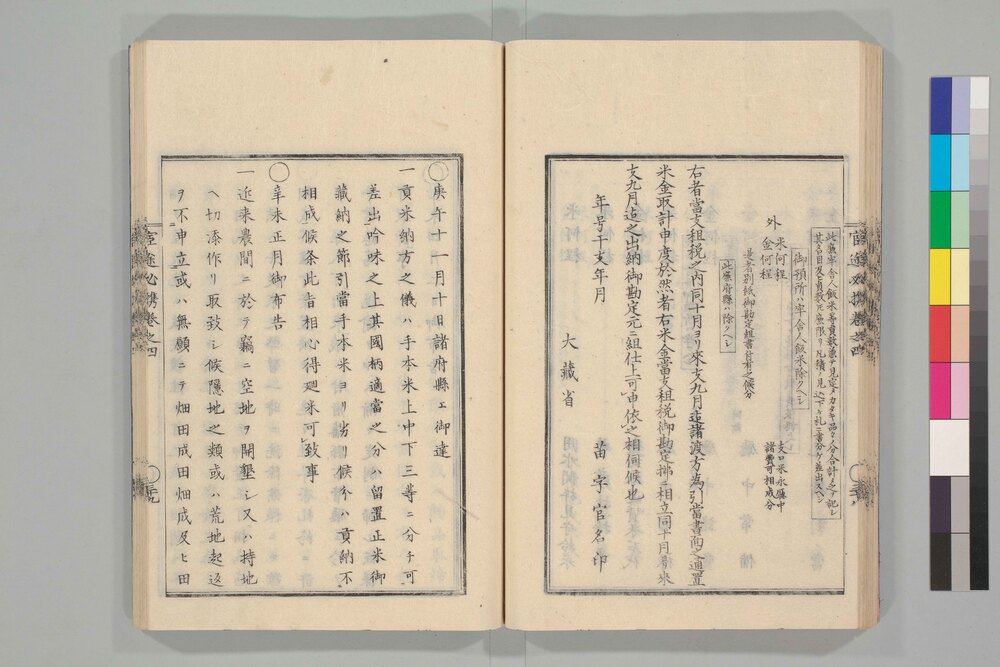 此廉牢舎人飯米等員數兼テ見定メカタキ品々ハ分合計ノミヲ記シ
其名目及ヒ員數ニ無限リ凡積ノ見込下ケ札ニ書分ケ差出スヘシ
御預所ハ牢舎人飯米除クヘシ
外
米何程
金何程
支口米永縣中
諸費可相成分
是者別紙御勘定組書付有之候分
此廉府縣ハ除クヘシ
右者當支租税之内同十月ヨリ來支九月迄諸渡方為引當書面之通置
米金取計申度於然者右米金當支租税御勘定拂ニ相立同十月ヨリ來
支九月迄之出納御勘定元ニ組仕上可申依之相伺候也
年号干支年月
苗字官名印
大藏省
官途必携巻之四
○庚午十一月十日諸府縣ェ御達
一貢米納方之儀ハ手本米上中下三等ニ分チ可
差出吟味之上其國柄適當之分ハ留置正米御
藏納之節引當手本米ヨリ劣リ候分ハ貢納不
相成候条此旨相心得廻米可致事
○辛未正月御布告
一近来農間ニ於テ竊ニ空地ヲ開墾シ又ハ持地
ヘ切添作リ取致シ候隠地之類或ハ荒地起返
ヲ不申立或ハ無願ニテ畑田成田畑成及ヒ田
官途必携巻之四